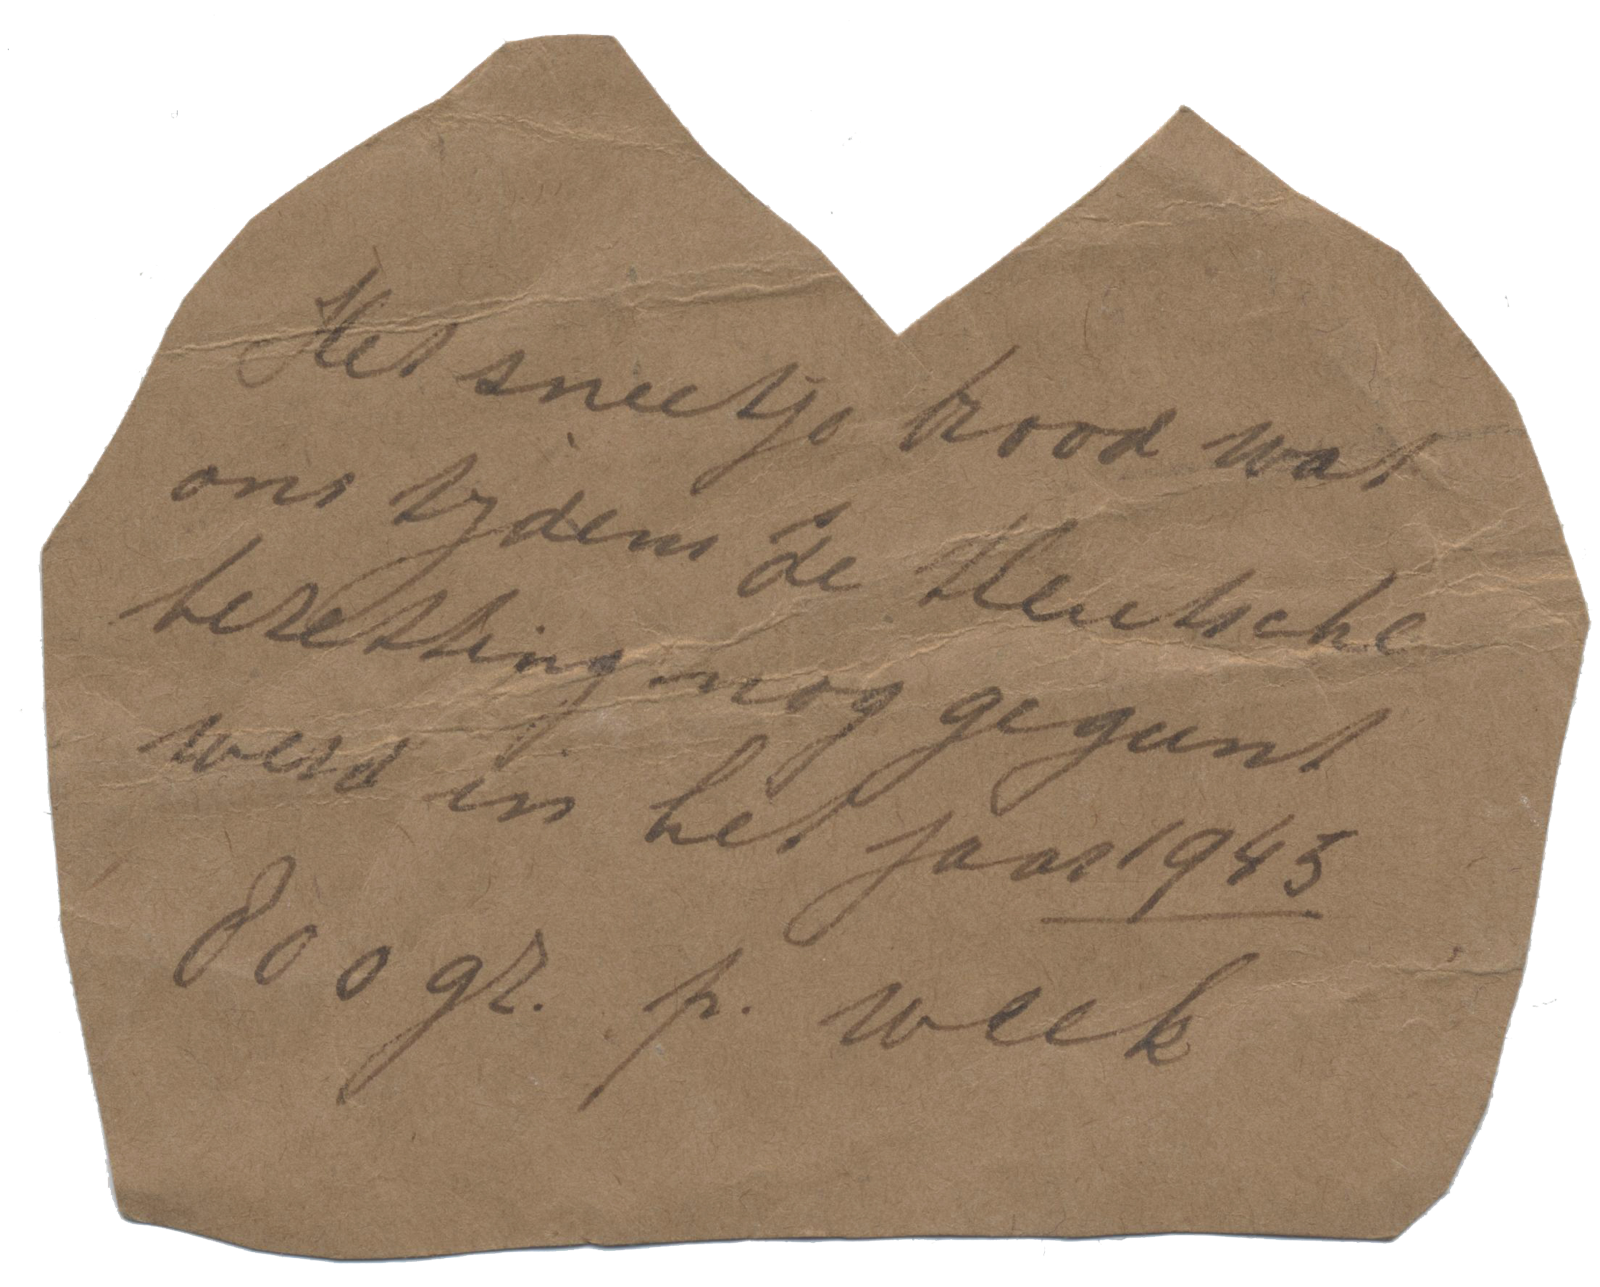 Het sneetje brood wat
ons tijdens de Deutsche
bezetting nog gegunt
werd in het jaar 1945
800 gr. p. week